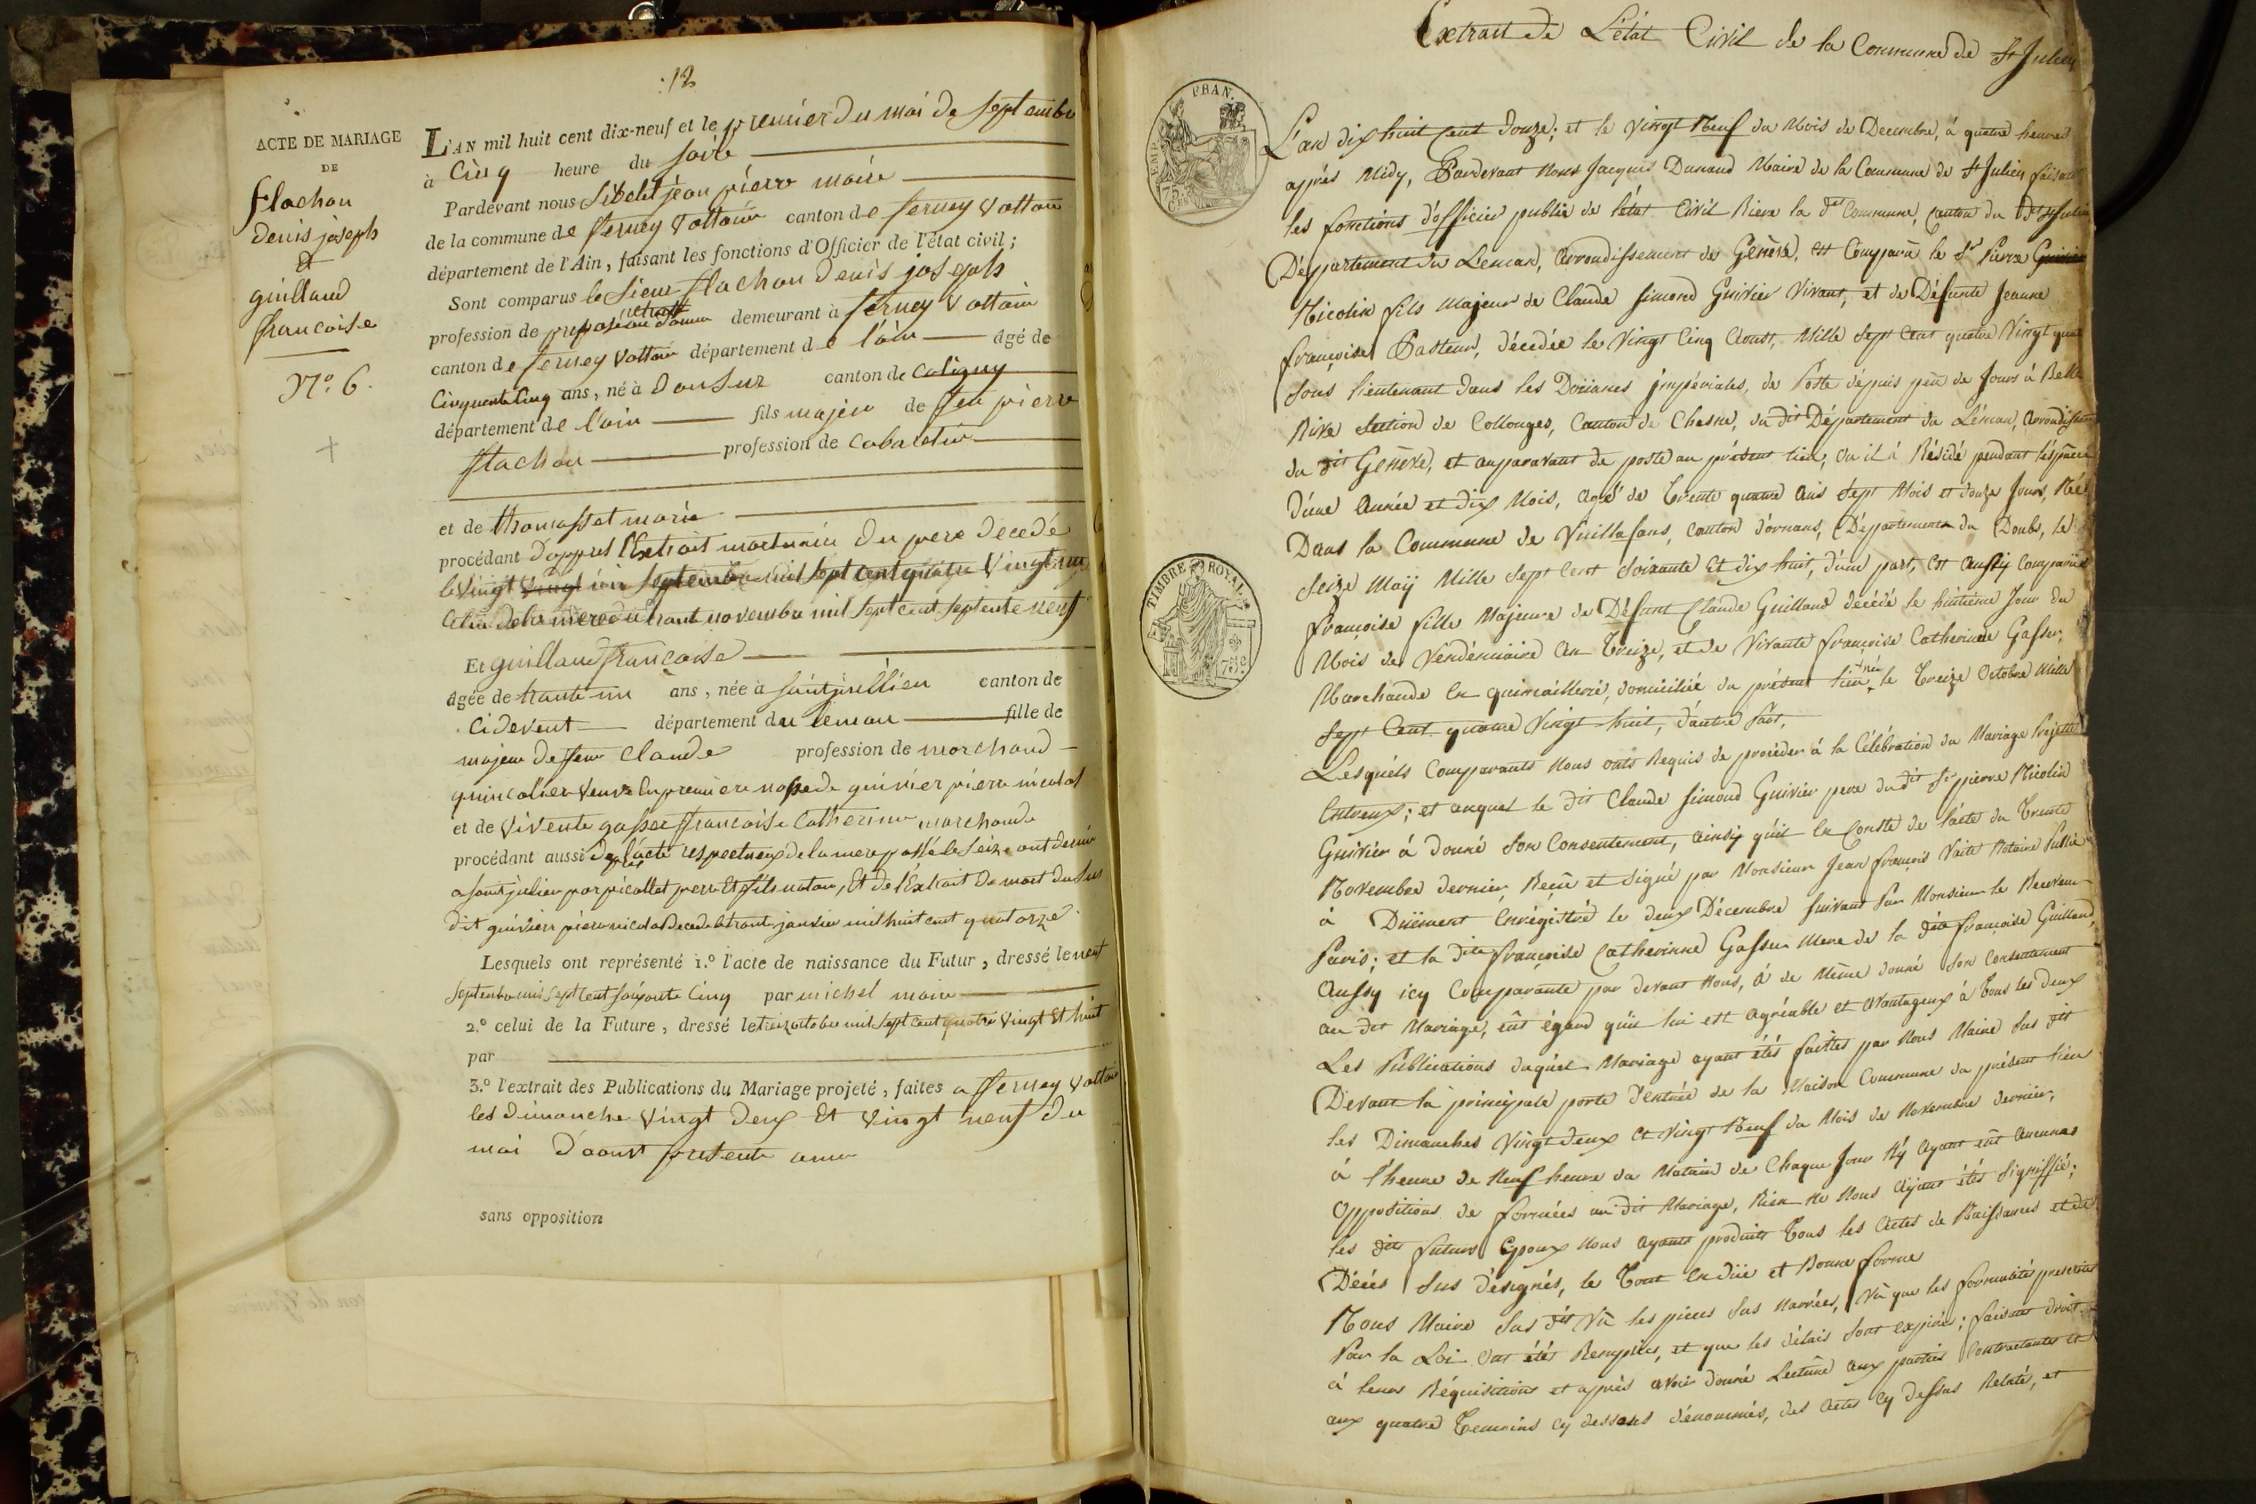 12
ACTE DE MARIAGE
DE
flachon
denis joseph
&
guilland
francoise
N.º 6.
L'AN mil huit cent dix-neuf et le premier du moi de septembre
à cinq heure du soire
Pardevant nous jean pierre maire
de la commune de ferney Voltaire canton de ferney Voltaire
département de l'Ain, faisant les fonctions d'Officier de l'état civil ;
Sont comparus le sieur flachon denis joseph
profession de demeurant à ferney Voltaire
canton de ferney Voltaire département de l'ain agé de
cinquante cinq ans, né à canton de coligny
département de l'ain fils majeur de feu pierre
flachon profession de cabaretier
et de marie
procédant d'appres l'Extrait mortuaire du pere decedé
le vingt septembre mil sept cent quatre vingt un
celui de la mere du trante novembre mil sept cent septente neuf
Et guilland francoise
agée de trante un ans, née à saint jullien canton de
ci devent département du leman fille de
majeur de feu Claude profession de marchand
quincalier veuve en premiere nosse de guivier pierre nicolas
et de vivente gasser francoise Catherine marchande
procédant aussi de l'acte respectueux de la mere passé le seize out dernier
a saint julien par picollet pere et fils notaire, Et de l'Extrait de mort du sus
dit guivier pierre nicolas decedé le trante janvier mil huit cent quatorze
Lesquels ont représenté 1.º l'acte de naissance du Futur, dressé le neuf
septembre mil sept cent soixante cinq par michel maire
2.º celui de la Future, dressé le treize octobre mil sept cent quatre vingt et huit
par
3.º l'extrait des Publications du Mariage projeté, faites a ferney Voltaire
les dimanche vingt deux et vingt neuf du
moi d'aoust presente anne
sans opposition
Extrait de L'état Civil de la Commune de St Julien
EMP. FRAN.
75.c
TIMBRE ROYAL
75.c
L'an dix huit cent douze; et le vingt Neuf du Mois de Decembre, à quatre heures
après Midy, Pardevant Nous Jacques Dunand Maire de la Commune de St Julien faisant
les fonctions d'officier public de l'état Civil Riere la dte Commune, Canton du dt St Julien
Département du Leman, arrondissement de Genève, est Comparu le Sr Pierre
Nicolin fils Majeur de Claude Simond Guivier Vivant, et de Défunte Jeanne
françoise Pasteur, décédée le Vingt Cinq Aoust, Mille sept Cent quatre Vingt
sous lieutenant dans les Doüanes impériales, de Poste dépuis peû de Jours à Belle
Rive section de Collonges, Canton de Chesne, du dit Département du Léman, arrondissement
du dit Genève, et auparavant de poste au présent lieu, ou il à Résidé pendant l'éspace
d'une Année et dix Mois, agé de Trente quatre Ans sept Mois et douze Jours, Né
Dans la Commune de Vuillafans, canton d'ornans, Département du Doubs, le
seize Maÿ Mille sept Cent Soixante et dix huit, d'une part, est Aussy Comparüe
françoise fille Majeure de Défunt Claude Guilland décédé le huitième Jour du
Mois de Vendémiaire An Treize, et de Vivante françoise Catherine Gasser,
Marchande en quincaillerie, domiciliée du présent lieu, née le Treize Octobre Mille
sept Cent quatre Vingt huit, d'autre Part,
Lesquels Comparants Nous onts Requis de procéder à la Célébration du Mariage Projetté
Entreux; et auquel le dit Claude Simond Guivier pere du dit Sr pierre Nicolin
Guivier à donné Son Consentement, ainsy qu'il en Conste de l'acte du Trente
Novembre dernier Reçû et signé par Monsieur Jean françois Notaire Public
à Düement Enrégistré le deux Décembre suivant par Monsieur le Receveur
Paris; et la dite françoise Catherinne Gasser Mere de la dte françoise Guilland,
Aussy icy Comparante par devant Nous, à de Même donné Son Consentement
au dit Mariage, eût égard qu'il lui est Agréable et Avantageux à Tous les deux
Les Publications duquel Mariage ayant étés faittes par Nous Maire sus dit
Devant la principale porte d'entrée de la Maison Commune du présent lieu
les Dimanches Vingt deux et vingt Neuf du Mois de Novembre dernier,
à l'heure de Neuf heure du Matin de Chaque Jour N'y Ayant eût Aucunes
Oppositions de formées au dit Mariage, Rien Ne Nous Ayant étés signiffié;
les dits futurs Epoux Nous ayants produits Tous les Actes de Naissances et de
Décés sus désignés, le Tout en düe et Bonne forme
Nous Maire Sus dit Vû les pieces sus Narrées, Vû que les formalités prescrites
Par la Loi ont étés Remplies, et que les délais sont expirés; faisant droit
à leur Réquisition et après avoir donné Lecture aux parties Contractantes et
aux quatre Temoins cy dessous dénommés, des Actes Cy dessus Relatés, et